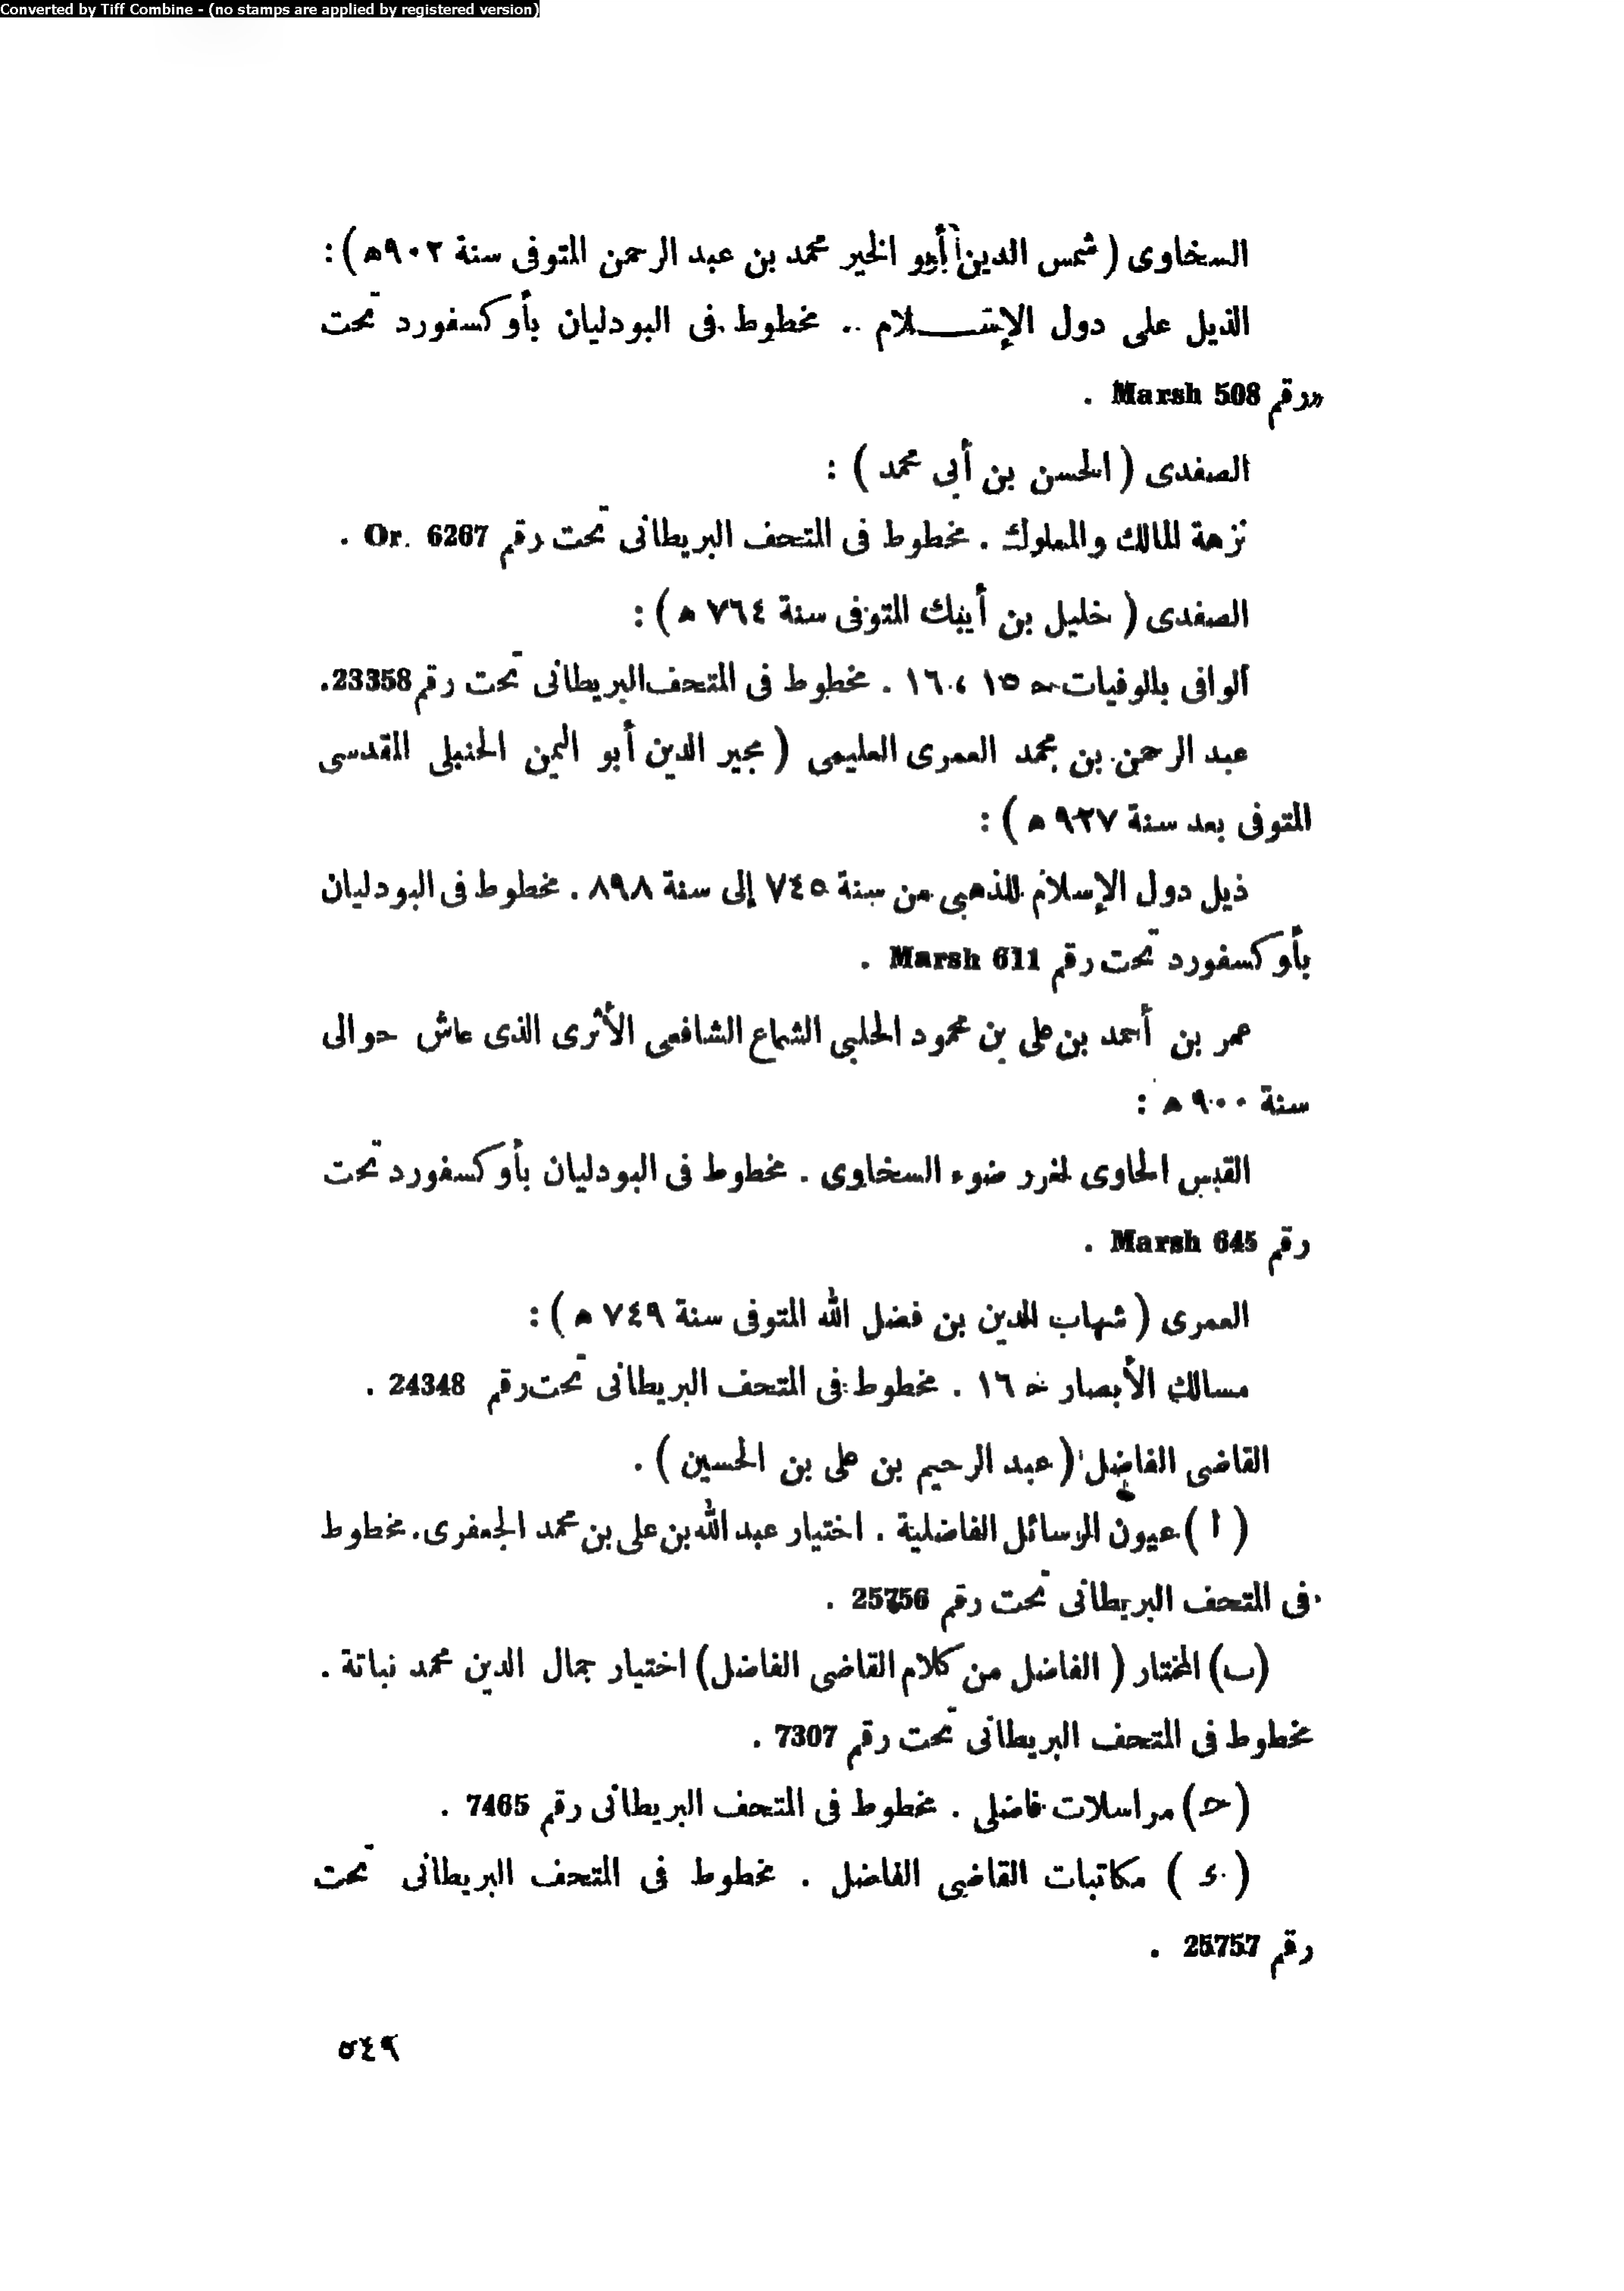 Converted by Tiff Combine - (no stamps are applied by registered version)
السخاوى ( شمس الدين أبو الخير محمد بن عبد الرحمن المتوفى سنة ٩٠٢ه ) :
الذيل على دول الإسلام . مخطوط فى البودليان بأوكسفورد تحت
رقم Marsh 508 .
الصفدى ( الحسن بن أبى محمد ) :
نزهة المالك والمملوك . مخطوط فى المتحف البريطانى تحت رقم Or. 6267 .
الصفدى ( خليل بن أيبك المتوفى سنة ٧٦٤ ه ) :
الوافى بالوفيات ح ١٥ ، ١٦ . مخطوط فى المتحف البريطانى تحت رقم 23358 .
عبد الرحمن بن محمد العمرى العليمى ( مجير الدين أبو اليمن الحنبلى المقدسى
المتوفى بعد سنة ٩٢٧ ه ) :
ذيل دول الإسلام للذهبى من سنة ٧٤٥ إلى سنة ٨٩٨ . مخطوط فى البودليان
بأوكسفورد تحت رقم Marsh 611 .
عمر بن أحمد بن على بن محمود الحلبى الشماع الشافعى الأثرى الذى عاش حوالى
سنة ٩٠٠ ه :
القبس الحاوى لغرر ضوء السخاوى . مخطوط فى البودليان بأوكسفورد تحت
رقم Marsh 645 .
العمرى ( شهاب الدين بن فضل الله المتوفى سنة ٧٤٩ ه ) :
مسالك الأبصار ح ١٦ . مخطوط فى المتحف البريطانى تحت رقم 24348 .
القاضى الفاضل ( عبد الرحيم بن على بن الحسين ) .
( ا ) عيون الرسائل الفاضلية . اختيار عبد الله بن على بن محمد الجعفرى . مخطوط
فى المتحف البريطانى تحت رقم 25756 .
(ب) المختار ( الفاضل من كلام القاضى الفاضل) اختيار جمال الدين محمد نباتة .
مخطوط فى المتحف البريطانى تحت رقم 7307 .
(ح) مراسلات فاضلى . مخطوط فى المتحف البريطانى رقم 7465 .
( ء ) مكاتبات القاضى الفاضل . مخطوط فى المتحف البريطانى تحت
رقم 25757 .
٥٤٩